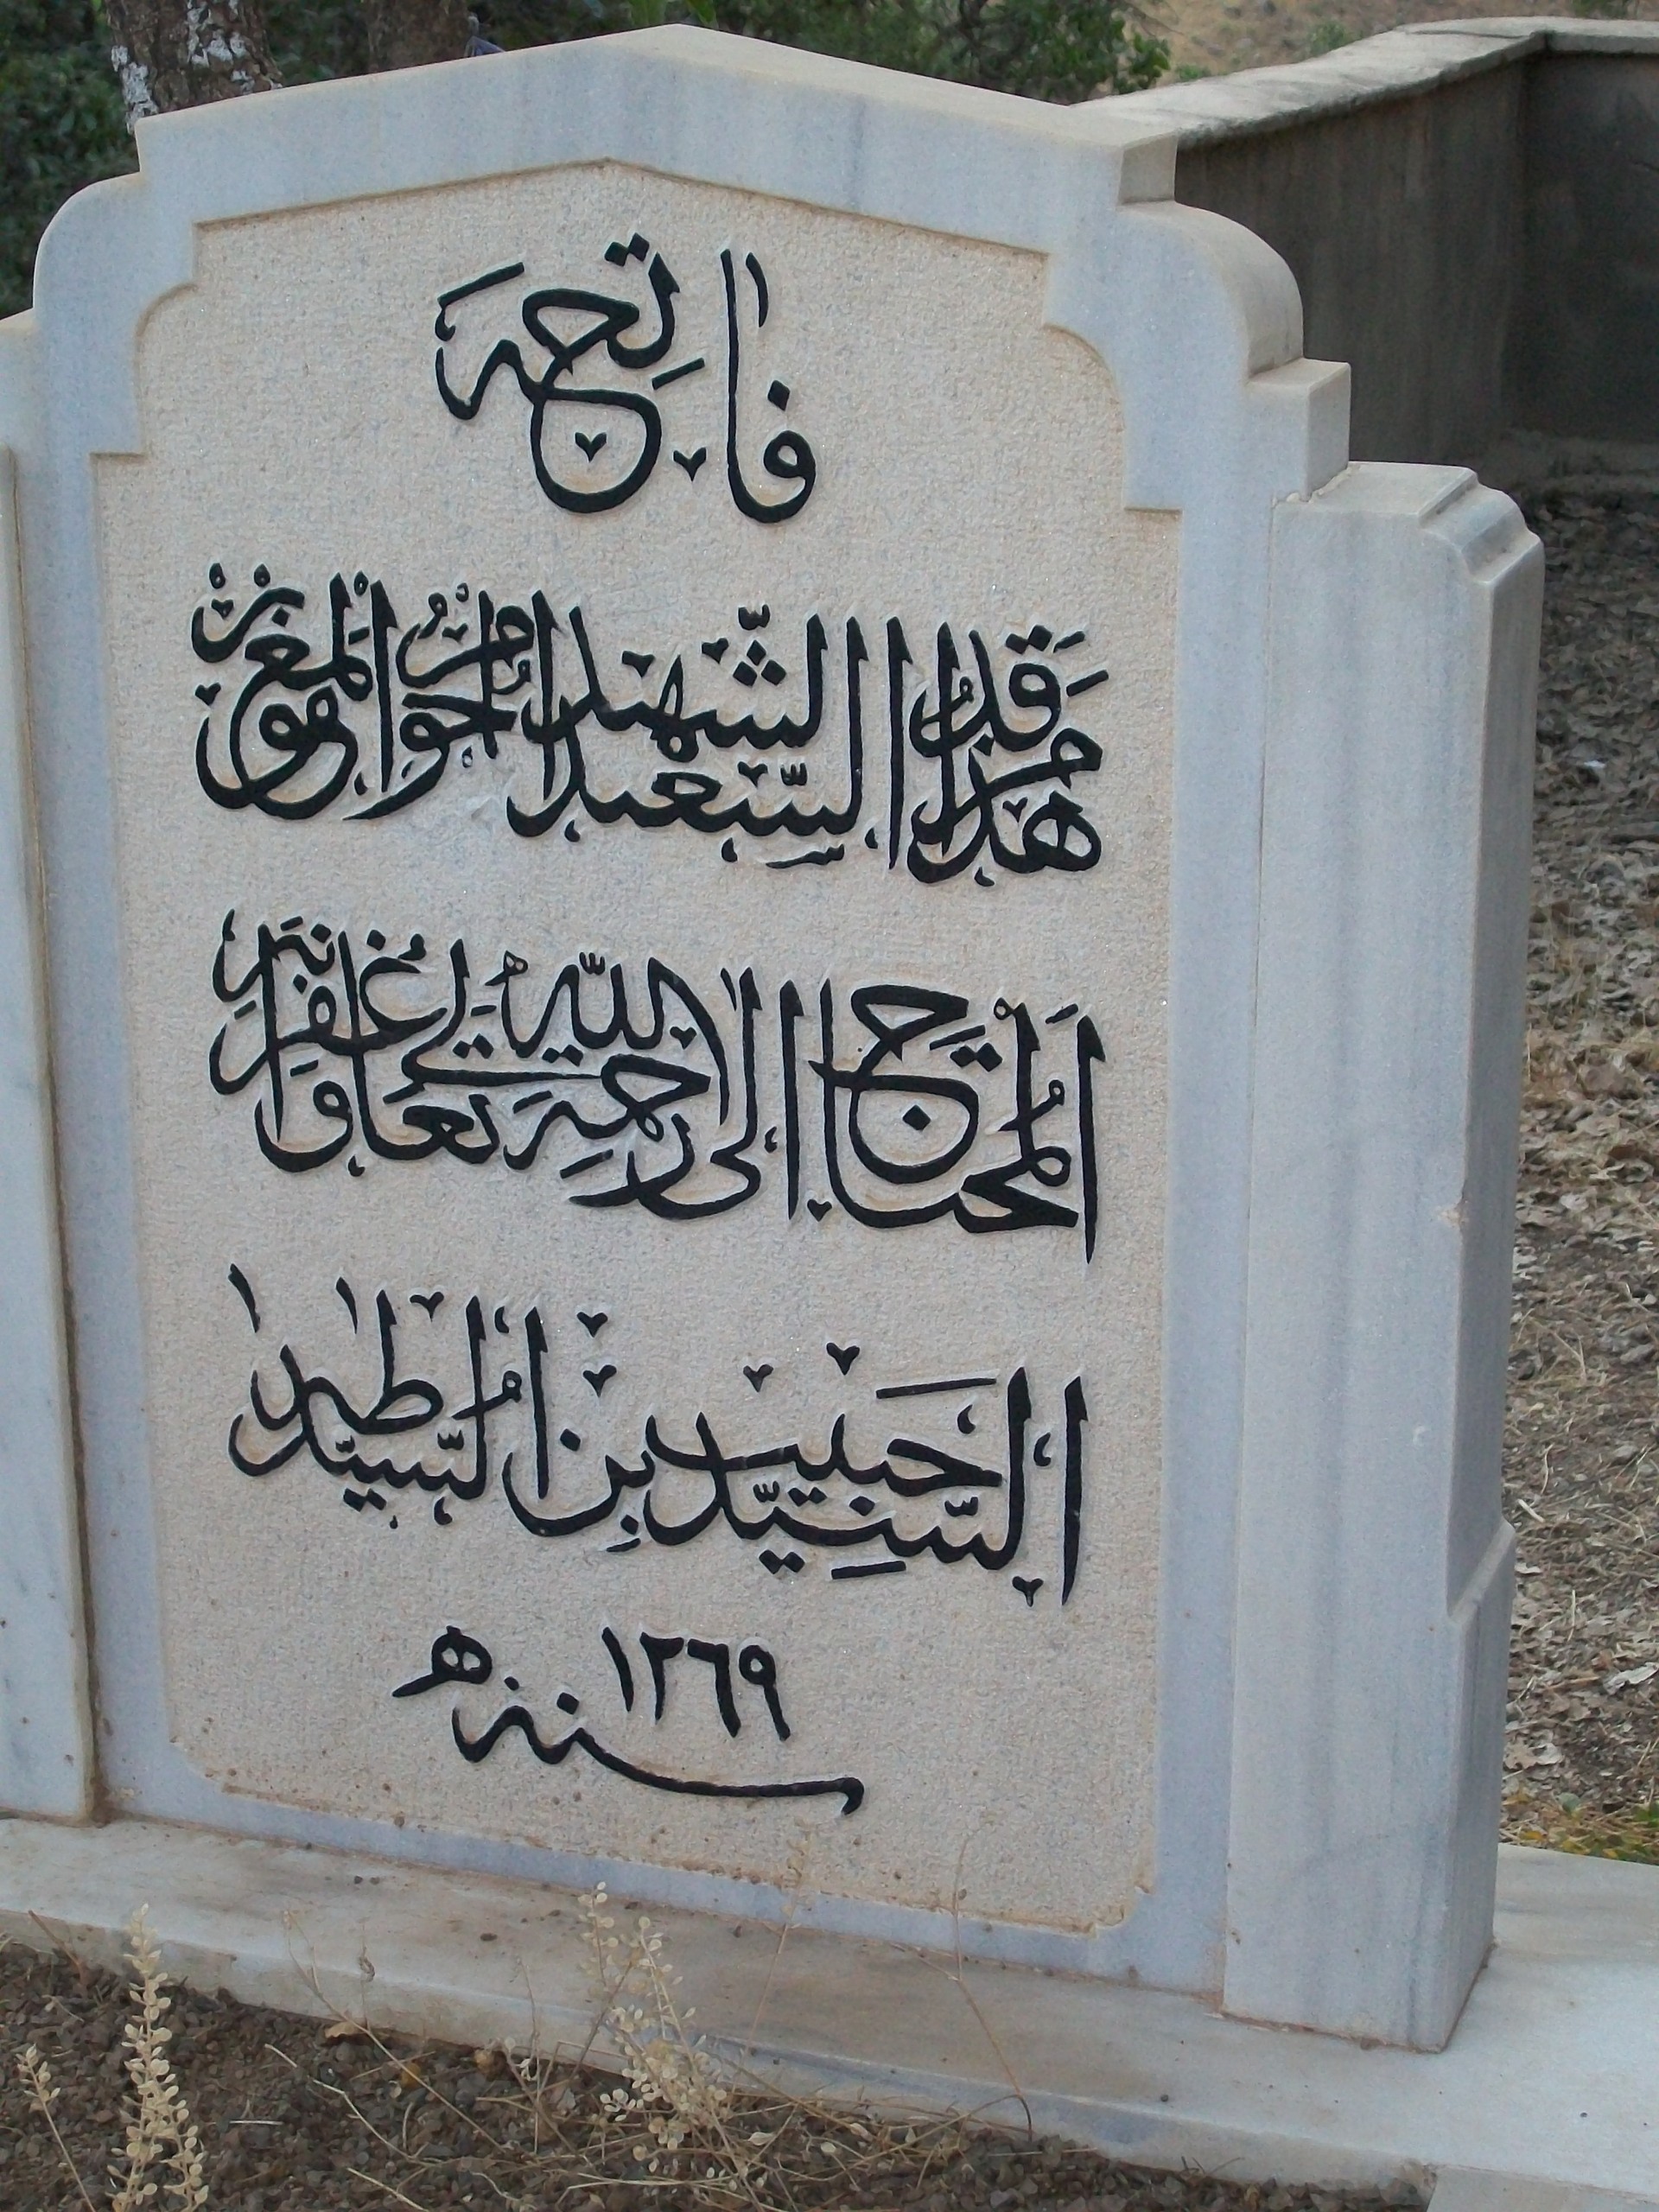 فاتحه
هذا مرقد الشهيد السعيد المرحوم المغفور
المحتاج الى رحمة الله تعالى وغفرانه
السيد حبيب بن السيد طه
سنة ١٢٦٩ ه